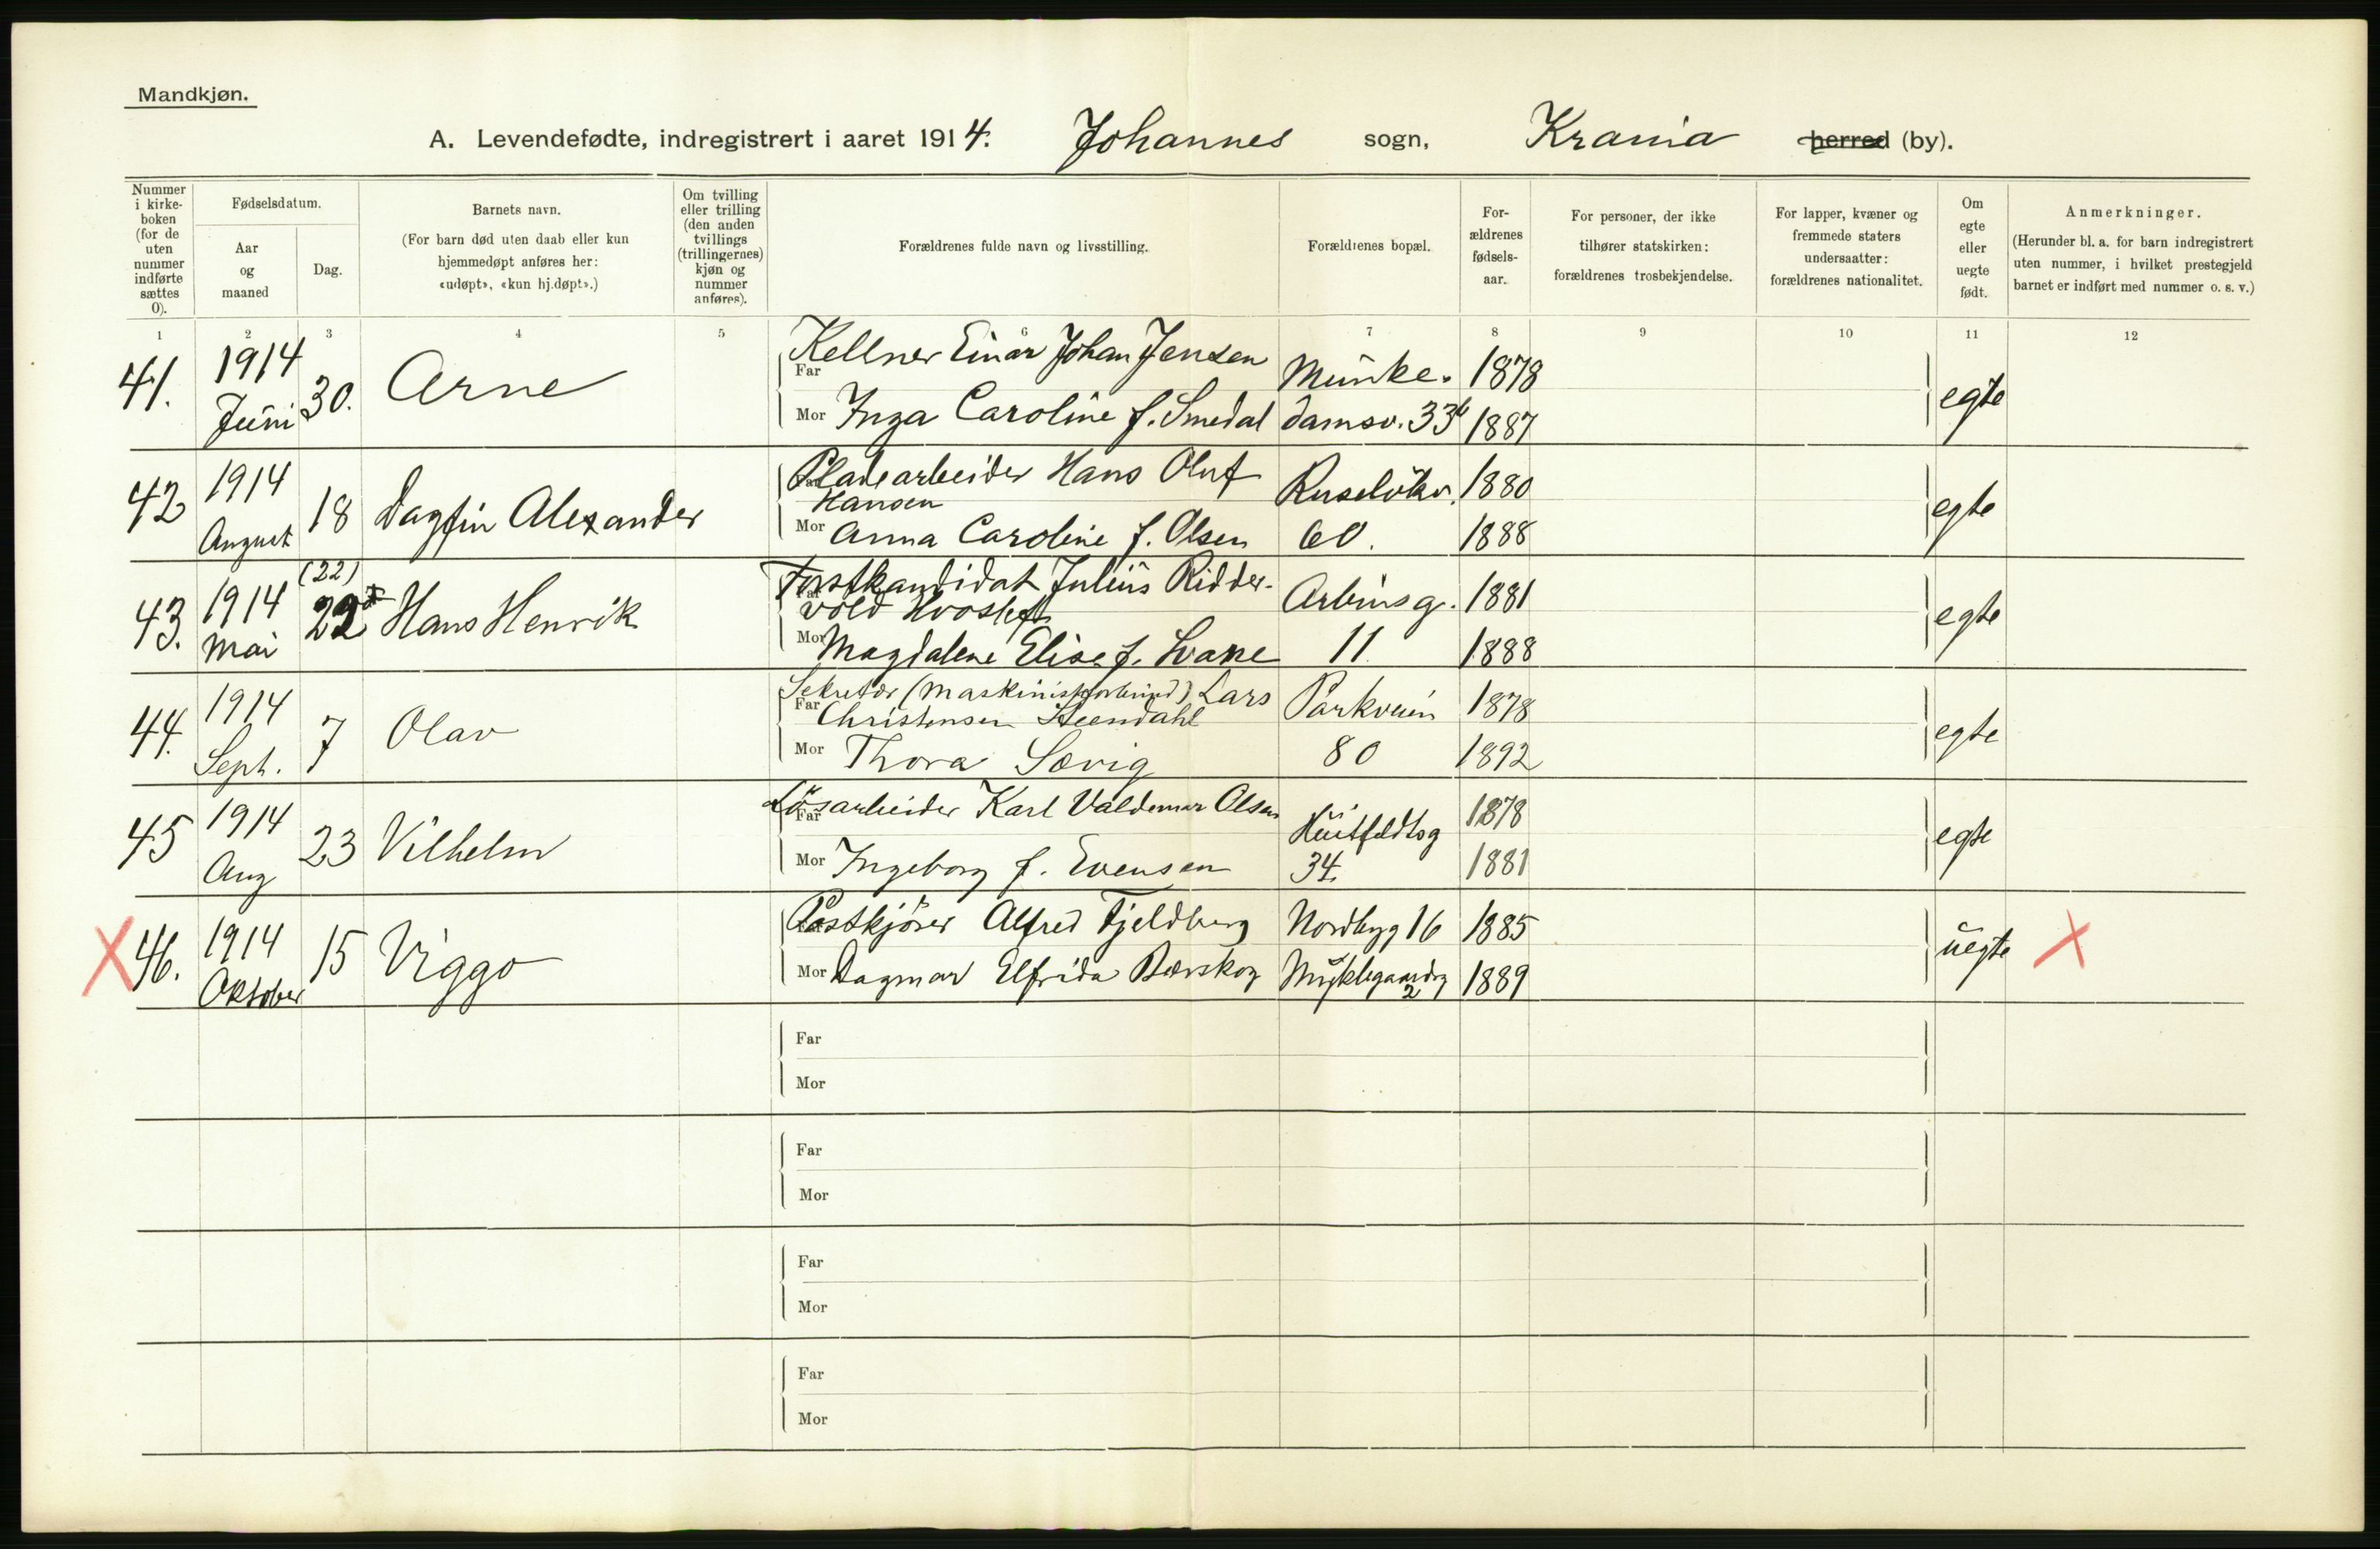 Mandkjøn.
A. Levendefødte, indregistrert i aaret 1914. Johannes sogn, Krania herred (by).
Nummer i kirkeboken (for de uten nummer indførte sættes 0).
Fødselsdatum.
Aar og maaned
Dag.
Barnets navn.
(For barn død uten daab eller kun hjemmedøpt anføres her: «udøpt», «kun hj.døpt».)
Om tvilling eller trilling (den anden tvillings (trillingernes) kjøn og nummer anføres).
Forældrenes fulde navn og livsstilling.
Forældrenes bopæl.
Forældrenes fødselsaar.
For personer, der ikke tilhører statskirken: forældrenes trosbekjendelse.
For lapper, kvæner og fremmede staters undersaatter: forældrenes nationalitet.
Om egte eller uegte født.
Anmerkninger.
(Herunder bl. a. for barn indregistrert uten nummer, i hvilket prestegjeld barnet er indført med nummer o. s. v.)
1 2 3 4 5 6 7 8 9 10 11 12
41. 1914 Juni 30. Arne
Far Kellner Einar Johan Jensen Munke- 1878
Mor Inga Caroline f. Smedal damsv. 33b 1887 egte
42 1914 August 18 Dagfin Alexander
Far Pladearbeider Hans Oluf Hansen Ruseløkv. 1880
Mor Anna Caroline f. Olsen 60. 1888 egte
43. 1914 Mai (22) 22 Hans Henrik
Far Forstkandidat Julius Riddervold Hvoslef Arbinsg. 1881
Mor Magdalene Elise f. Svane 11 1888 egte
44. 1914 Sept. 7 Olav
Far Sekretær (Maskinistforbund) Lars Christensen Steendahl Parkveien 1878
Mor Thora Sævig 80 1892 egte
45 1914 Aug 23 Vilhelm
Far Løsarbeider Karl Valdemar Olsen Huitfeldtsg 1878
Mor Ingeborg f. Evensen 34. 1881 egte
X 46. 1914 Oktober 15 Viggo
Far Postkjører Alfred Fjeldberg Nordbyg 16 1885
Mor Dagmar Elfrida Bærskog Myklegaardsg 2 1889 uegte X
Far
Mor
Far
Mor
Far
Mor
Far
Mor